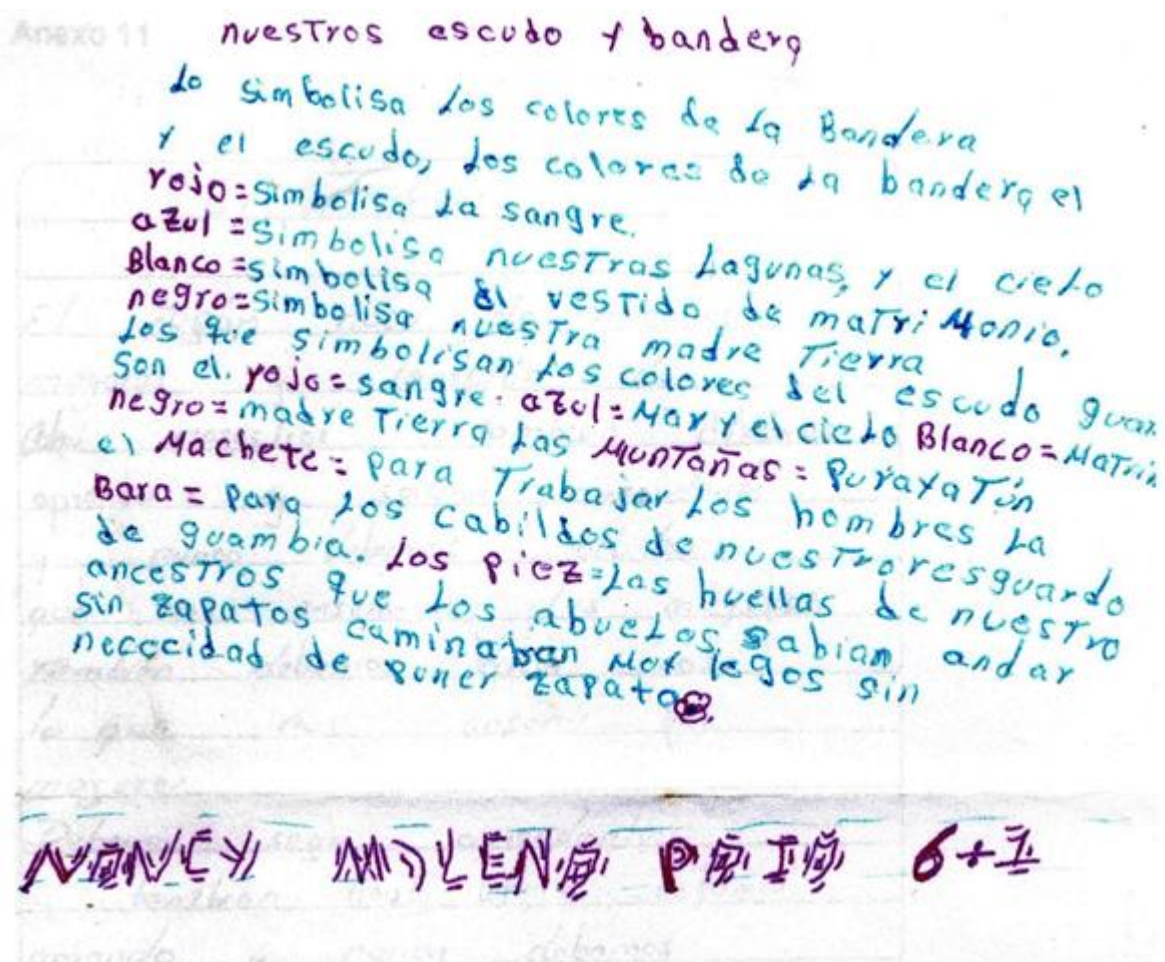 Anexo 11
nuestros escudo y bandera
Lo simbolisa Los colores de La Bandera
y el escudo, Los colores de La bandera el
rojo = simbolisa La sangre.
azul = simbolisa nuestras Lagunas, y el cielo
Blanco = simbolisa el vestido de matrimonio.
negro = simbolisa nuestra madre Tierra
Los que simbolisan Los colores del escudo guam
Son el. rojo = sangre. azul = Mar y el cielo Blanco = Matrim
negro = madre Tierra Las Muntañas = Purayatun
el Machete = para Trabajar Los hombres La
Bara = para Los cabildos de nuestro resguardo
de guambia. Los piez = Las huellas de nuestro
ancestros que Los abuelos sabian andar
sin zapatos caminaban Moy legos sin
nececidad de puner zapatos.
6+1